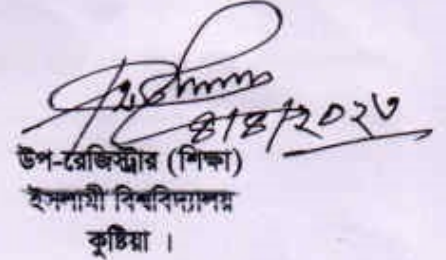 ৪/৪/২০২৩
উপ-রেজিস্ট্রার (শিক্ষা)
ইসলামী বিশ্ববিদ্যালয়
কুষ্টিয়া ।